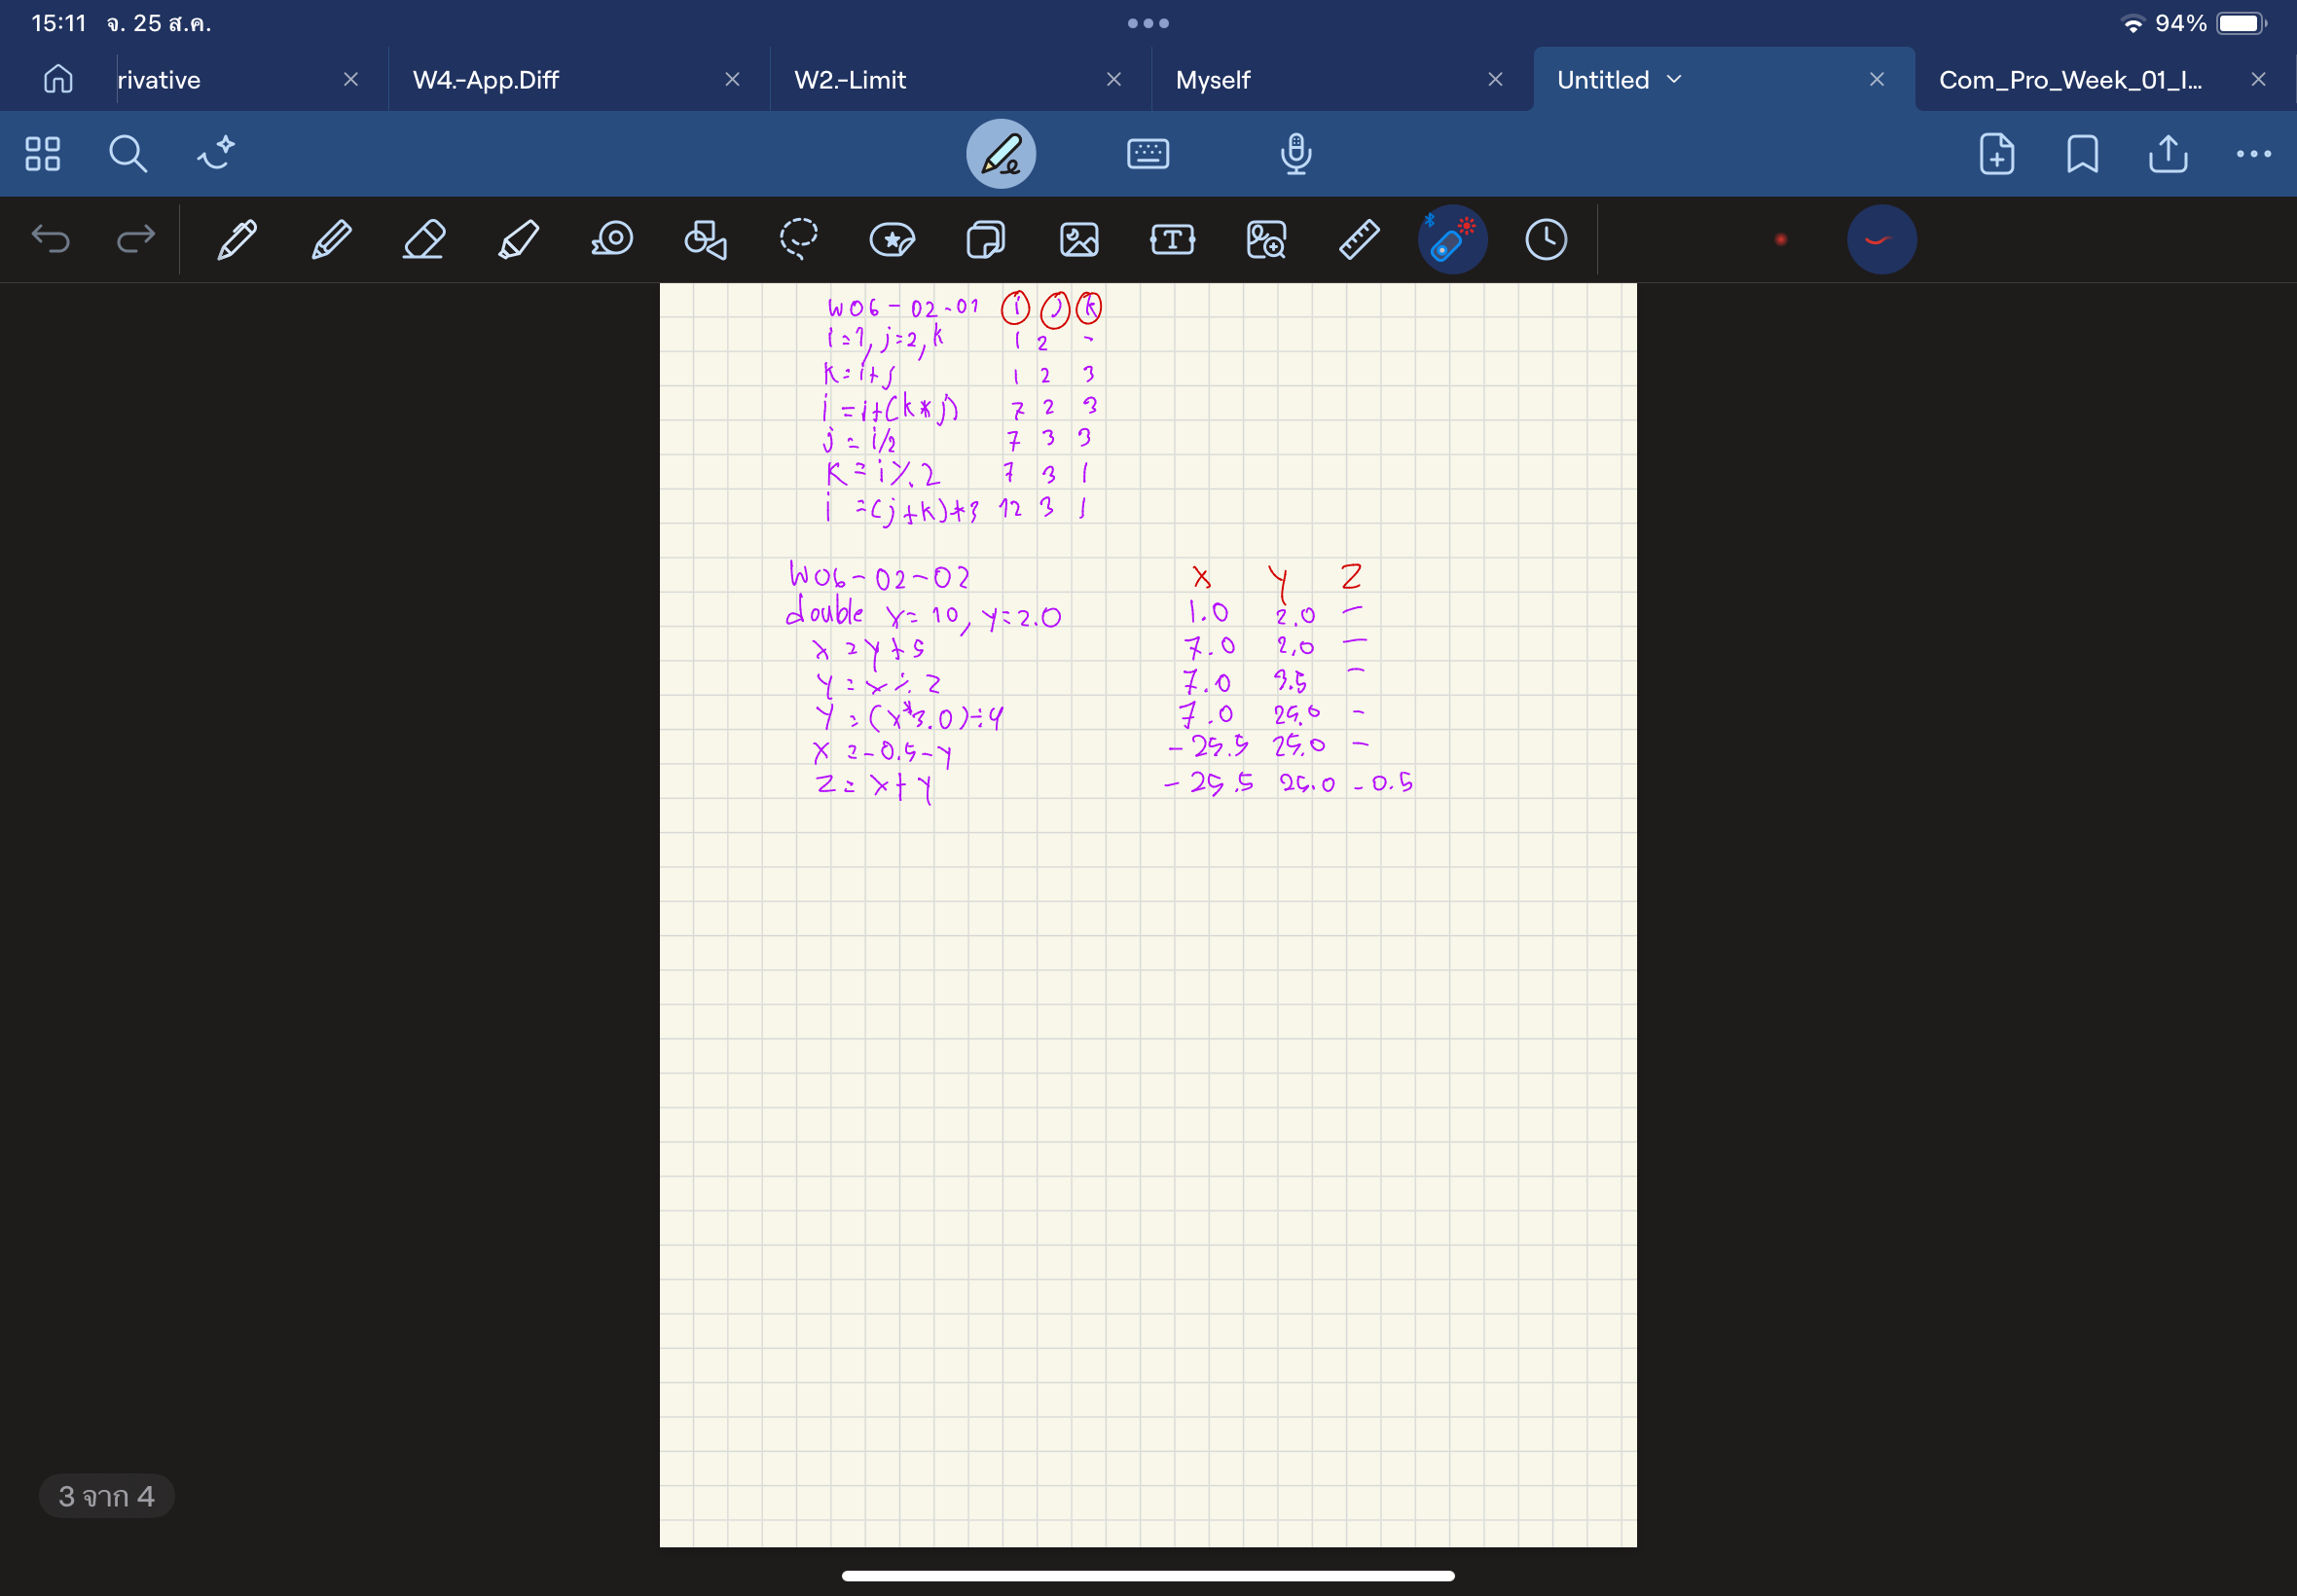 15:11 จ. 25 ส.ค. 94%
rivative W4.-App.Diff W2.-Limit Myself Untitled Com_Pro_Week_01_I...
W06-02-01 i j k
i=1, j=2, k 1 2 -
k=i+j 1 2 3
i=i+(k*j) 7 2 3
j=i/2 7 3 3
k=i%2 7 3 1
i=(j+k)*3 12 3 1
W06-02-02 X Y Z
double x=10, y=2.0 1.0 2.0 -
x=y+5 7.0 2.0 -
y=x%2 7.0 3.5 -
y=(x*3.0)÷4 7.0 25.0 -
x=-0.5-y -25.5 25.0 -
z=x+y -25.5 25.0 -0.5
3 จาก 4